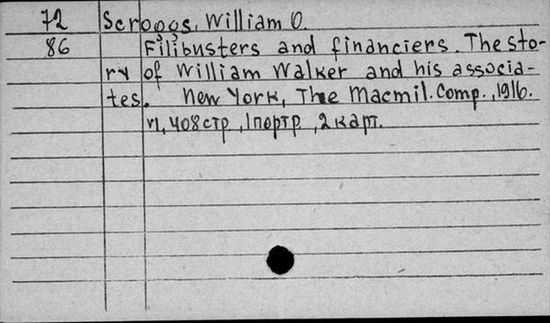 72 Scroggs, William O.
86 Filibusters and financiers. The sto-
ry of William Walker and his associa-
tes. New York, The Macmil. Comp., 1916.
VI, 408 стр, 1 портр, 2 карт.